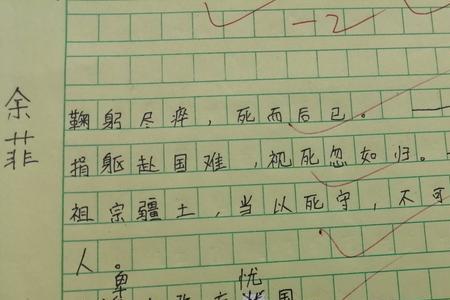 -2
余菲
鞠躬尽瘁，死而后已。
捐躯赴国难，视死忽如归。
祖宗疆土，当以死守，不可
人。
卑 忧
国